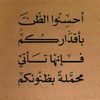 أحسنوا الظن
بأقداركم
فإنها تأتي
محملة بظنونكم